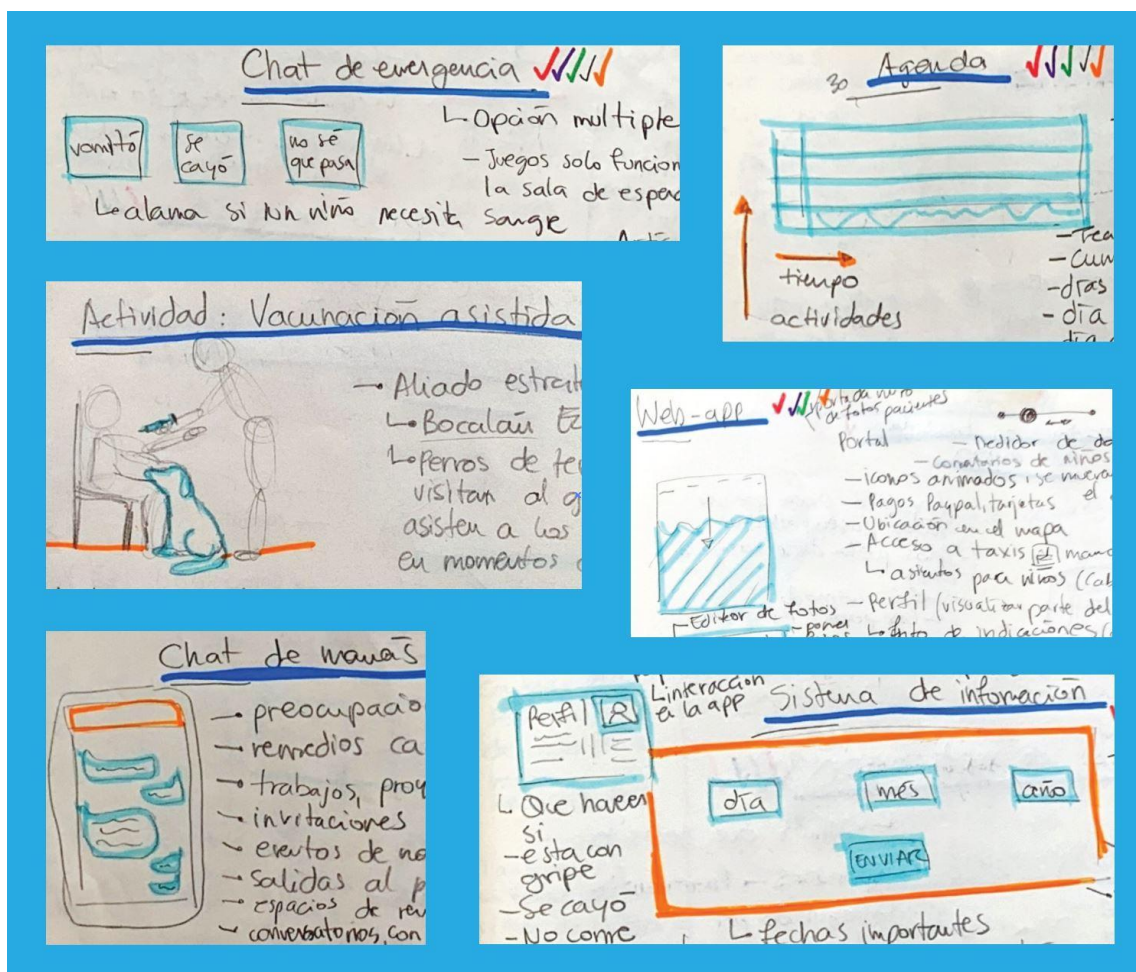 Chat de emergencia
vomitó
se
cayó
no sé
que pasa
Opción multiple
- Juegos solo funcion
la sala de espera
alama si un niño necesita sangre
30 Agenda
tiempo
actividades
- Tea
- Cum
- días
- día
Actividad: Vacunación asistida
Aliado estrat
Bocalán
Perros de te
visitan al g
asisten a los
en momentos
Web-app
de fotos pacientes
Portal
- Medidor de do
- Comentarios de niños
- iconos animados, se mueva
- Pagos Paypal, tarjetas el
- Ubicación en el mapa
- Acceso a taxis
asientos para niños (Cab
- Perfil (visualizar parte del
Editor de fotos
- poner
de indicaciones (
Chat de mamás
preocupacio
remedios ca
trabajos, proy
invitaciones
eventos de no
salidas al p
espacios de
conversatorios, con
interacción
a la app
Perfil
Sistema de información
Que hacer
si
- esta con
gripe
- Se cayó
- No come
día
més
año
ENVIAR
fechas importantes